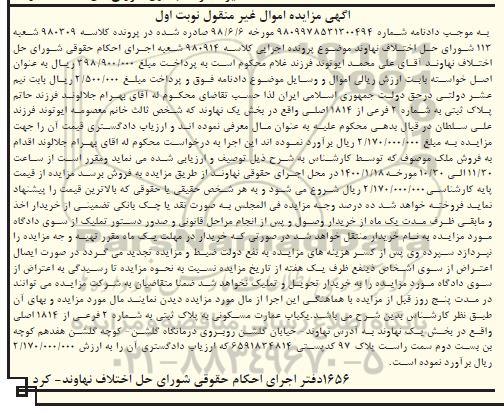 آگهی مزایده اموال غیر منقول نوبت اول
به موجب دادنامه شماره ۹۸۰۹۹۷۸۵۳۱۳۰۰۴۹۴ مورخه ۹۸/۶/۶ صادره شده در پرونده کلاسه ۹۸۰۳۰۹ شعبه
۱۱۳ شورای حل اختلاف نهاوند موضوع پرونده اجرایی کلاسه ۹۸۰۹۱۴ شعبه اجرای احکام حقوقی شورای حل
اختلاف نهاوند آقای علی محمد ایوتوند فرزند غلام محکوم است به پرداخت مبلغ ۳۹۸/۹۰۰/۰۰۰ ریال به عنوان
اصل خواسته بابت ارزش ریالی اموال و وسایل موضوع دادنامه فوق و پرداخت مبلغ ۲/۵۰۰/۰۰۰ ریال بابت نیم
عشر دولتی درحق دولت جمهوری اسلامی ایران لذا حسب تقاضای محکوم له آقای بهرام جلالوند فرزند حاتم
پلاک ثبتی به شماره ۲ فرعی از ۱۸۱۴ اصلی واقع در بخش یک نهاوند که شخص ثالث خانم معصومه ایوتوند فرزند
علی سلطان در قبال بدهی محکوم علیه به عنوان مال معرفی نموده اند و ارزیاب دادگستری قیمت آن را جهت
مزایده به مبلغ ۲/۱۷۰/۰۰۰/۰۰۰ ریال برآورد نموده اند این اجرا به درخواست محکوم له آقای بهرام جلالوند اقدام
به فروش ملک موصوف که توسط کارشناس به شرح ذیل توصیف و ارزیابی شده می نماید ومقرر است از ساعت
۱۱/۳۰ الی ۱۰/۳۰ مورخه ۱۴۰۰/۱/۱۸ در محل اجرای حقوقی نهاوند از طریق مزایده به فروش برسد مزایده از قیمت
پایه کارشناسی ۲/۱۷۰/۰۰۰/۰۰۰ ریال شروع می شود و به هر شخص حقیقی یا حقوقی که بالاترین قیمت را پیشنهاد
نماید فروخته خواهد شد ده درصد وجه مزایده فی المجلس به صورت نقد یا چک بانکی تضمینی از خریدار اخذ
و مابقی ظرف مدت یک ماه از خریدار وصول و پس از انجام مراحل قانونی و صدور دستور تملیک از سوی دادگاه
مورد مزایده به نام خریدار منتقل خواهد شد،در صورتی که خریدار در مهلت یک ماه مقرر تهیه و جه مزایده را
نپردازد سپرده وی پس از کسر هزینه های مزایده به نفع دولت ضبط و مزایده تجدید می گردد در صورت ایصال
اعتراض از سوی اشخاص ذینفع ظرف یک هفته از تاریخ مزایده نسبت به نحوه مزایده تا رسیدگی به اعتراض از
سوی دادگاه مورد مزایده را به خریدار تحویل و تملیک نخواهد شد ضمنا متقاضیان به شرکت مزایده می توانند
در مدت پنج روز قبل از مزایده با هماهنگی این اجرا از مال مورد مزایده دیدن نمایند مال مورد مزایده و بهای آن
طبق نظر کارشناس بدین شرح می باشد یکباب عمارت مسکونی به پلاک ثبتی به شماره ۲ فرعی از ۱۸۱۴ اصلی
واقع در بخش یک نهاوند به آدرس نهاوند- خیابان گلشن روبروی درمانگاه گلشن - کوچه گلشن هفدهم کوچه
بن بست دوم سمت راست پلاک ۹۷ کدپستی ۶۵۹۱۸۳۴۸۱۴ که ارزیاب دادگستری آن را به ارزش ۲/۱۷۰/۰۰۰/۰۰۰
ریال برآورد نموده است.
۱۶۵۶دفتر اجرای احکام حقوقی شورای حل اختلاف نهاوند- کرد
۰۲۱-۸۸۳۴۹۶۷۰-۵